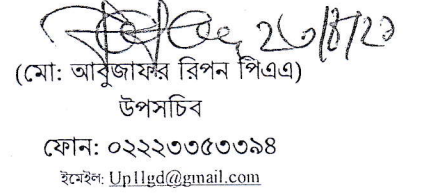 (মো: আবুজাফর রিপন পিএএ)
উপসচিব
ফোন: ০২২২৩৩৫৩৩৯৪
ইমেইল: Up1lgd@gmail.com